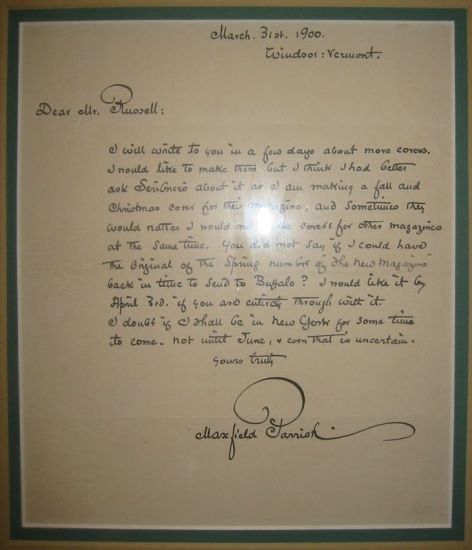 March. 31st. 1900.
Windsor: Vermont.
Dear Mr. Russell:
I will write to you in a few days about more covers.
I would like to make them but I think I had better
ask Scribners about it as I am making a fall and
Christmas cover for their magazine, and sometimes they
would rather I would not make covers for other magazines
at the same time. You did not say if I could have
the original of the Spring number of the New Magazine
back in time to send to Buffalo? I would like it by
April 3rd. if you are entirely through with it.
I doubt if I shall be in New York for some time
to come. not until June, & even that is uncertain.
Yours truly
Maxfield Parrish.